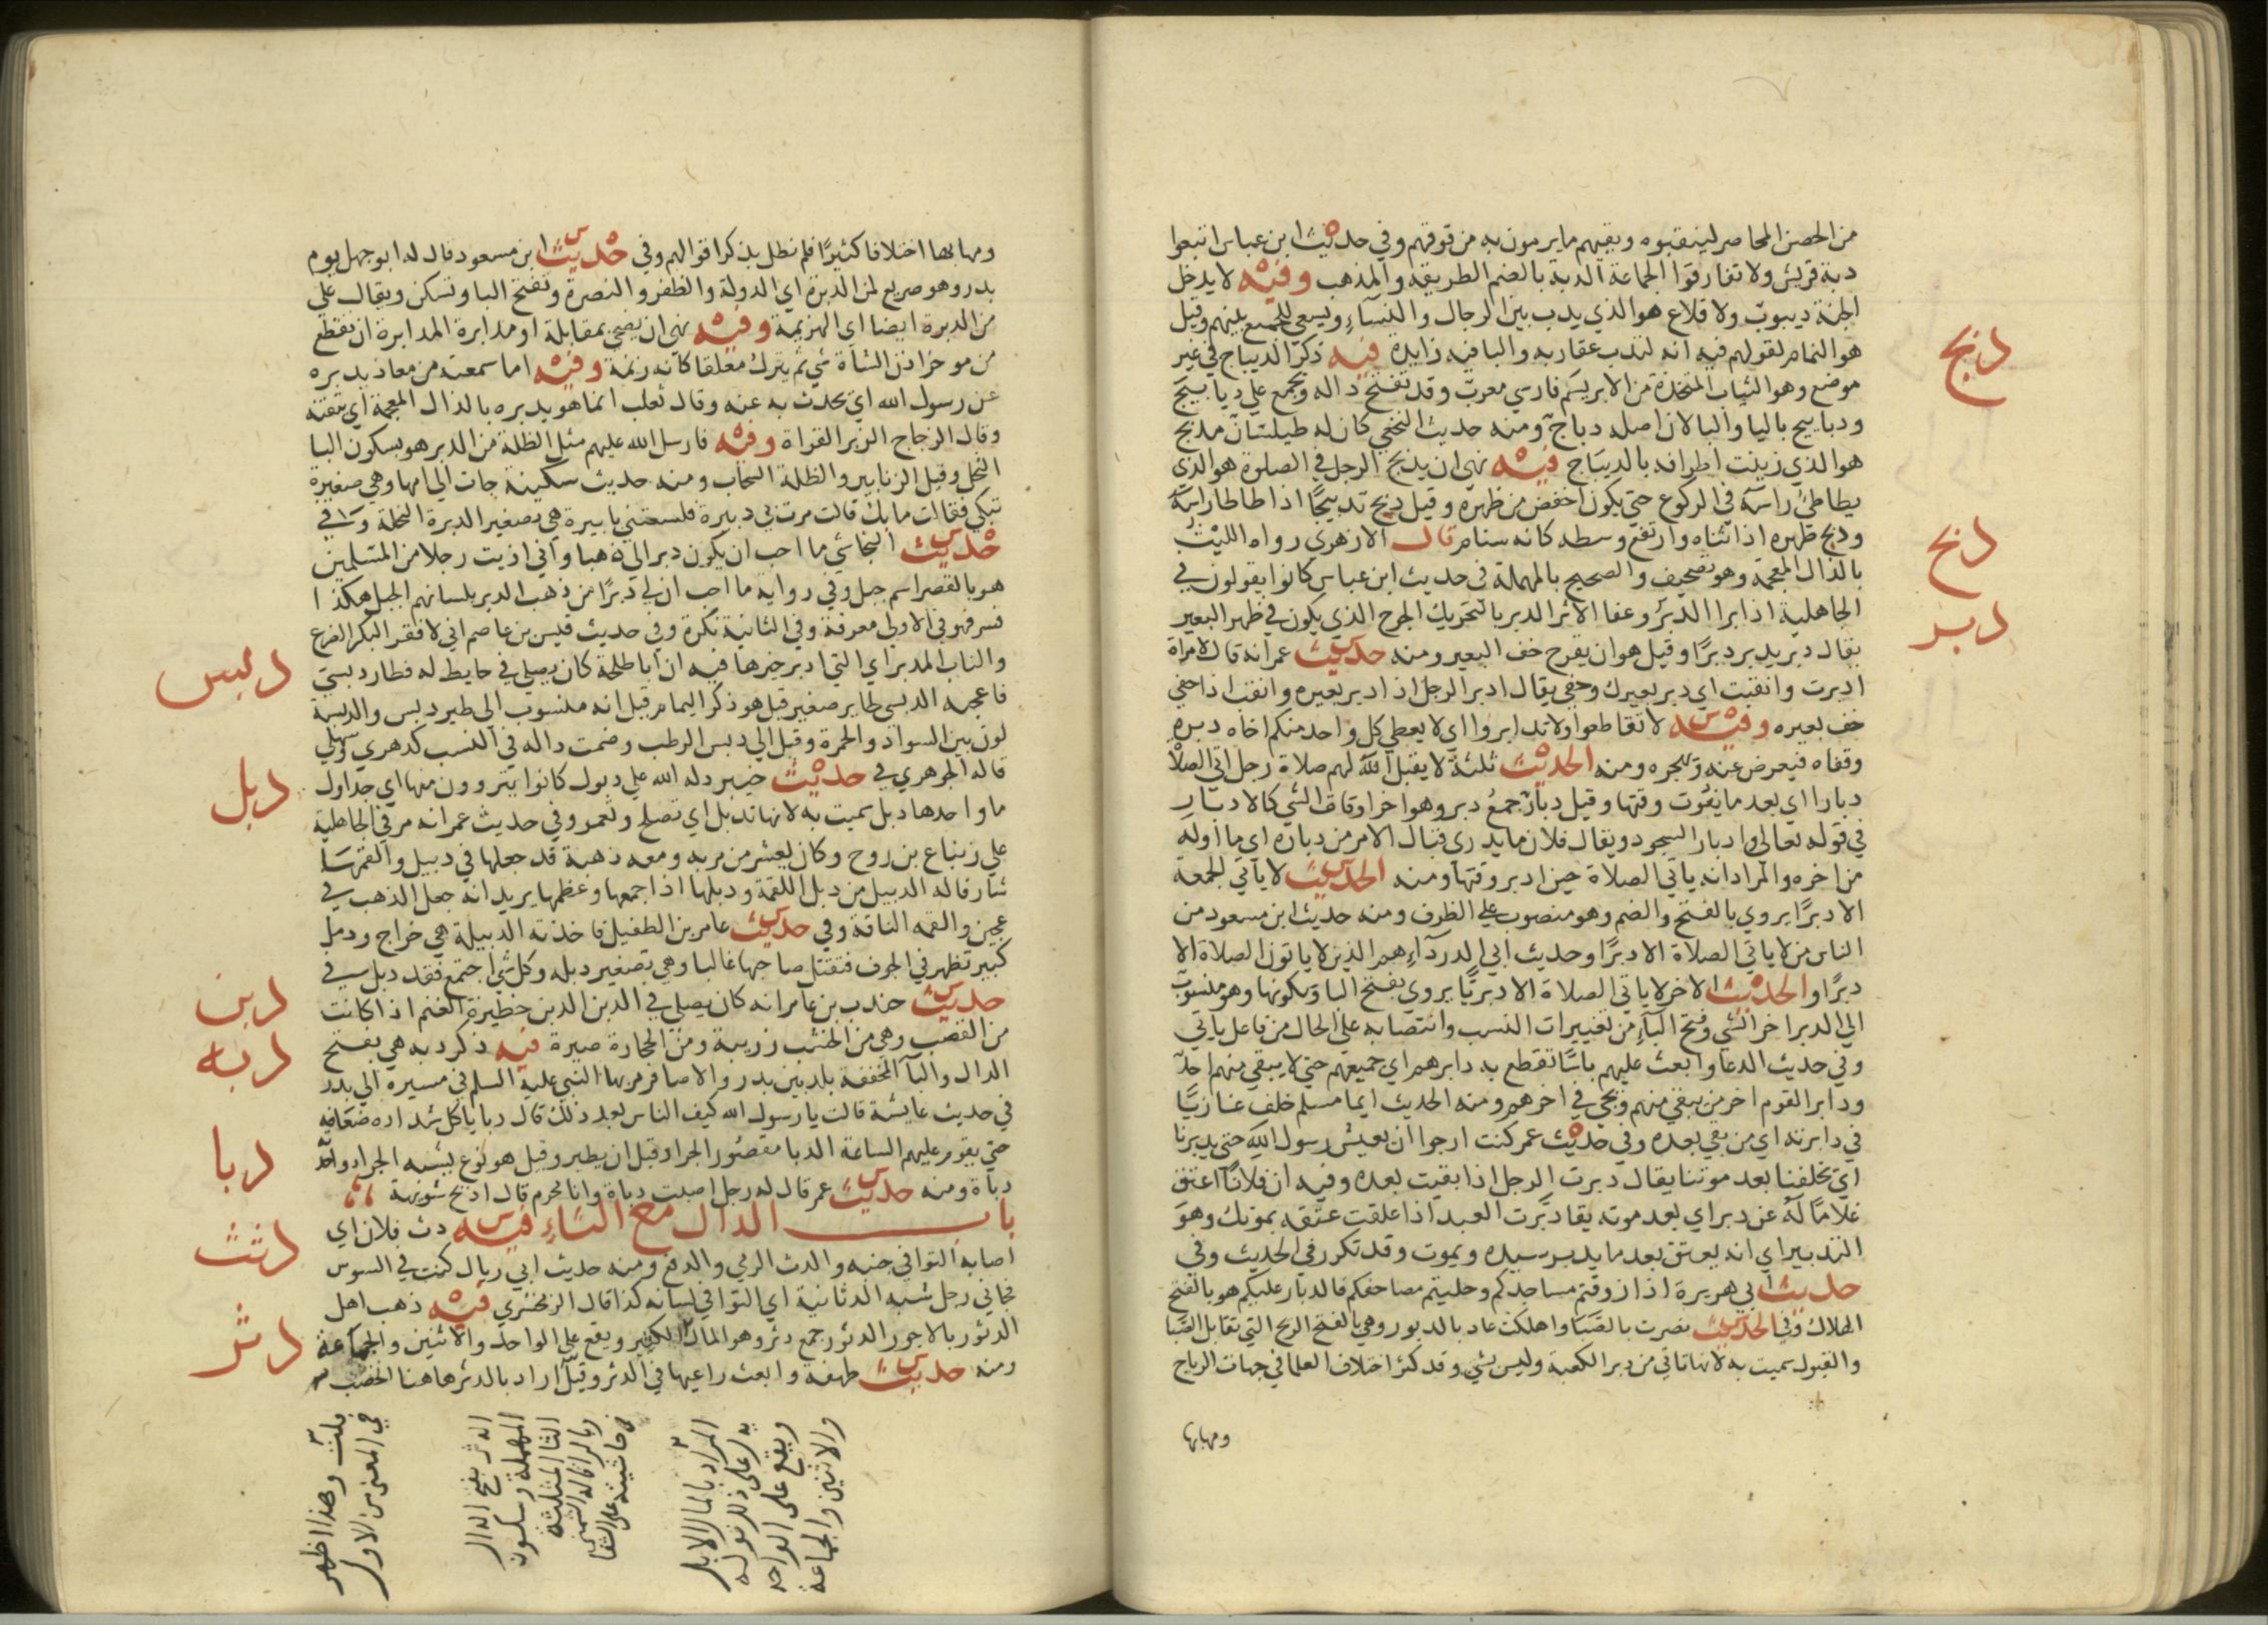 من الحصن المحاصر لينقبوه ويقيهم ما يرمون به من فوقهم وفي حديث ابن عباس اتبعوا
دبة قريش ولا تفارقوا الجماعة الدبة بالضم الطريقة والمذهب وفيه لا يدخل
الجنة ديبوب ولا قلاع هو الذي يدب بين الرجال والنسآء ويسعي للجمع بينهم وقيل
هو النمام لقولهم فيه انه لتدب عقاربه واليا فيه زايدة فيه ذكر الديباج في غير
موضع وهو الثياب المتخذة من الابريسم فارسي معرب وقد تفتح داله ويجمع علي ديابيج
ودبابيج باليا والبا لان اصله دباج ومنه حديث النخعي كان له طيلسان مدبج
هو الذي زينت اطرافه بالديباج فيه نهي ان يذبح الرجل في الصلوة هو الذي
يطاطئ راسه في الركوع حتي يكون اخفض من ظهره وقيل دبح تدبيحا اذا طاطا راسه
ودبح ظهره اذا ثناه وارتفع وسطه كانه سنام قال الازهري رواه الليث
بالذال المعجمة وهو تصحيف والصحيح بالمهملة في حديث ابن عباس كانوا يقولون في
الجاهلية اذا برا الدبر وعفا الاثر الدبر بالتحريك الجرح الذي يكون في ظهر البعير
يقال دبر يدبر دبرا وقيل هو ان يقرح خف البعير ومنه حديث عمر انه قال لامراة
ادبرت وانقبت اي دبر بعيرك وحفي يقال ادبر الرجل اذا ادبر بعيره وانقب اذا حفي
خف بعيره وفيه لا تقاطعوا ولا تدابروا اي لا يعطي كل واحد منكم اخاه دبره
وقفاه فيعرض عنه ويهجره ومنه الحديث ثلثة لا يقبل الله لهم صلاة رجل اتي الصلاة
دبارا اي بعد ما يفوت وقتها وقيل دبار جمع دبر وهو اخر اوقات الشي كالادبار
في قوله تعالي وادبار السجود ويقال فلان ما يدري قبال الامر من دباره اي ما اوله
من اخره والمراد انه ياتي الصلاة حين ادبر وقتها ومنه الحديث لا ياتي الجمعة
الا دبرا يروي بالفتح والضم وهو منصوب علي الظرف ومنه حديث ابن مسعود من
الناس من لا ياتي الصلاة الا دبرا وحديث ابي الدردآء هم الذين لا ياتون الصلاة الا
دبرا والحديث الاخر لا ياتي الصلاة الا دبريا يروي بفتح البا وسكونها وهو منسوب
الي الدبر اخر الشي وفتح البآء من تغييرات النسب وانتصابه علي الحال من فاعل ياتي
وفي حديث الدعا وابعث عليهم باسا تقطع به دابرهم اي جميعهم حتي لا يبقي منهم احد
ودابر القوم اخر من يبقي منهم ويجي في اخرهم ومنه الحديث ايما مسلم خلف غازيا
في دابرته اي من بقي بعده وفي حديث عمر كنت ارجوا ان يعيش رسول الله حتي يدبرنا
اي يخلفنا بعد موتنا يقال دبرت الرجل اذا بقيت بعده وفيه ان فلانا اعتق
غلاما له عن دبر اي بعد موته يقا دبرت العبد اذا علقت عتقه بموتك وهو
التدبير اي انه يعتق بعد ما يدبر سيده ويموت وقد تكرر في الحديث وفي
حديث ابي هريرة اذا زوقتم مساجدكم وحليتم مصاحفكم فالدبار عليكم هو بالفتح
الهلاك وفي الحديث نصرت بالصبا واهلكت عاد بالدبور وهي بالفتح الريح التي تقابل الصبا
والقبول سميت به لانها تاتي من دبر الكعبة وليس بشي وقد كثر اختلاف العلما في جهات الرياح
ومهابها
دبج
دبح
دبر
ومهابها اختلافا كثيرا فلم نطل بذكر اقوالهم وفي حديث ابن مسعود قال له ابو جهل يوم
بدر وهو صريع لمن الدبرة اي الدولة والظفر والنصرة وتفتح البا وتسكن ويقال علي
من الدبرة ايضا اي الهزيمة وفيه نهي ان يضحي بمقابلة او مدابرة المدابرة ان يقطع
من موخر اذن الشاة شي ثم يترك معلقا كانه زنمة وفيه اما سمعته من معاذ يدبره
عن رسول الله اي يحدث به عنه وقال ثعلب انما هو يذبره بالذال المعجمة اي يتقنه
وقال الزجاج الزبر القراة وفيه فارسل الله عليهم مثل الظلة من الدبر هو بسكون البا
النحل وقيل الزنابير والظلة السحاب ومنه حديث سكينة جات الي امها وهي صغيرة
تبكي فقالت ما بك قالت مرت بي دبيرة فلسعتني بابيرة هي تصغير الدبرة النحلة وفي
حديث النجاشي ما احب ان يكون دبر الي ذهبا واني اذيت رجلا من المسلمين
هو بالقصر اسم جبل وفي رواية ما احب ان لي دبرا من ذهب الدبر بلسانهم الجبل هكذا
فسر فهو في الاولي معرفة وفي الثانية نكرة وفي حديث قيس بن عاصم اني لافقر البكر الضرع
والناب المدبر اي التي ادبر خيرها فيه ان ابا طلحة كان يصلي في حايط له فطار دبسي
فاعجبه الدبسي طاير صغير قيل هو ذكر اليمام وقيل انه منسوب الي طير دبس والدبسة
لون بين السواد والحمرة وقيل الي دبس الرطب وضمت داله في النسب كدهري وسهلي
قاله الجوهري في حديث خيبر دله الله علي دبول كانوا يتروون منها اي جداول
ما واحدها دبل سميت به لانها تدبل اي تصلح وتعمر وفي حديث عمر انه مر في الجاهلية
علي زنباع بن روح وكان يعشر من مر به ومعه ذهبة قد جعلها في دبيل والقمها
شارفا له الدبيل من دبل اللقمة ودبلها اذا جمعها وعظمها يريد انه جعل الذهب في
عجين والقمه الناقة وفي حديث عامر بن الطفيل فاخذته الدبيلة هي خراج ودمل
كبير تظهر في الجوف فتقتل صاحبها غالبا وهي تصغير دبله وكل شي اجتمع فقد دبل في
حديث جندب بن عامر انه كان يصلي في الدبن الدبن حظيرة الغنم اذا كانت
من القصب وهي من الخشب زريبة ومن الحجارة صيرة فيه ذكر دبه هي بفتح
الدال والبآ المخففة بلد بين بدر والاصافر مر بها النبي عليه السلم في مسيره الي بدر
في حديث عايشة قالت يا رسول الله كيف الناس بعد ذلك قال دبا ياكل شداده ضعافه
حتي يقوم عليهم الساعة الدبا مقصور الجراد قبل ان يطير وقيل هو نوع يشبه الجراد واحده
دباة ومنه حديث عمر قال له رجل اصبت دباة وانا محرم قال اذبح شويهة
باب الدال مع الثاء فيه دث فلان اي
اصابه التوا في جنبه والدث الرمي والدفع ومنه حديث ابي ريال كنت في السوس
فجاني رجل شبه الدثانية اي التوا في لسانه كذا قال الزمخشري فيه ذهب اهل
الدثور بالاجور الدثور جمع دثر وهو المال الكثير ويقع علي الواحد والاثنين والجماعة
ومنه حديث طهفة وابعث راعيها في الدثر وقيل اراد بالدثر هاهنا الخصب
دبس
دبل
دبن
دبه
دبا
دثث
دثر
المراد بالمال الابل
يدل علي ذلك قوله
ويقع علي الواحد
والاثنين والجماعة
الدثر بفتح الدال
المهملة وسكون
الثا المثلثة
وبالرا قاله الشمني
في حاشيته علي الشفا
قلت وهذا اظهر
في المعني من الاول